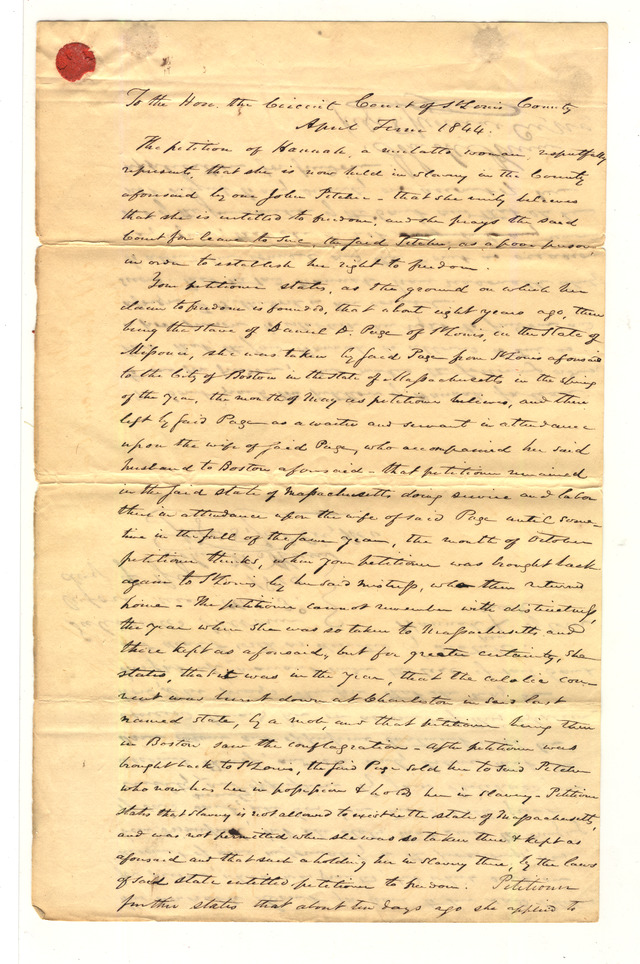 To the Hon. the Circuit Court of St Louis County
April Term 1844.
The petition of Hannah, a mulatto woman, respectfully
represents, that she is now held in Slavery in the County
aforesaid by one John Pitcher – that she verily believes
that she is entitled to freedom, and she prays the said
Court for leave to sue, the said Pitcher, as a poor person
in order to establish her right to freedom.
Your petitioner states, as the ground on which her
claim to freedom is founded, that about eight years ago, then
being the slave of Daniel D. Page of St Louis, in the State of
Missouri, she was taken by said Page from St Louis aforesaid
to the City of Boston in the State of Massachusetts in the Spring
of the year, the month of May as petitioner believes, and there
left by said Page as a waiter and servant in attendance
upon the wife of said Page, who accompanied her said
husband to Boston aforesaid – that petitioner remained
in the said State of Massachusetts doing service and labor
there in attendance upon the wife of said Page until some
time in the fall of the same year, the month of October
petitioner thinks, when your petitioner was brought back
again to St Louis by her said mistress, who then returned
home – The petitioner cannot remember with distinctness,
the year when she was so taken to Massachusetts and
there kept as aforesaid, but for greater certainty, she
states, that it was in the year, that the catholic con-
vent was burnt down at Charleston in said last
named State, by a mob, and that petitioner being then
in Boston saw the conflagration – After petitioner was
brought back to St Louis, the said Page sold her to said Pitcher
who now has her in possession & holds her in slavery – Petitioner
states that Slavery is not allowed to exist in the state of Massachusetts,
and was not permitted when she was so taken there & kept as
aforesaid and that such a holding her in Slavery there, by the laws
of said state entitled petitioner to freedom. Petitioner
further states that about ten days ago she applied to